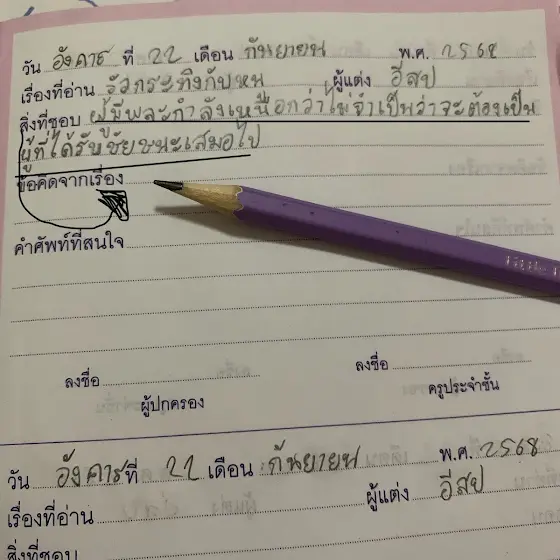 วัน อังคาร ที่ 22 เดือน กันยายน พ.ศ. 2568
เรื่องที่อ่าน วัวกระทิงกับหนู ผู้แต่ง อีสป
สิ่งที่ชอบ ผู้มีพละกำลังเหนือกว่าไม่จำเป็นว่าจะต้องเป็น
ผู้ที่ได้รับชัยชนะเสมอไป
ข้อคิดจากเรื่อง
คำศัพท์ที่สนใจ
ลงชื่อ ลงชื่อ
ผู้ปกครอง ครูประจำชั้น
วัน อังคาร ที่ 22 เดือน กันยายน พ.ศ. 2568
เรื่องที่อ่าน ผู้แต่ง อีสป
สิ่งที่ชอบ